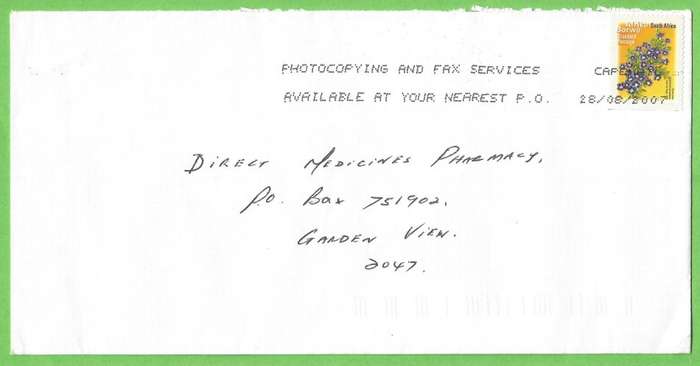 South Africa
PHOTOCOPYING AND FAX SERVICES
AVAILABLE AT YOUR NEAREST P.O. 28/08/2007
DIRECT MEDICINES PHARMACY.
P.O. Box 751902.
GARDEN VIEW.
2047.